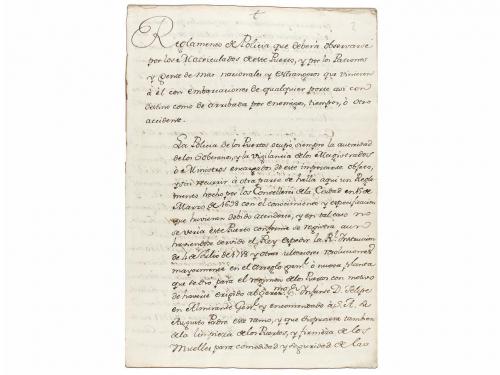 Reglamento de Policia que deberà observarse
por los Matriculados de este Puerto, y por los Patrones
y gente de mar nacionales y estrangeros que vinieren
à èl con embarcaciones de qualquier porte asi con
destino como de arribada por enemigos, tiempos, ò otro
accidente.
La Policia de los Puertos ocupò siempre la autoridad
de los Soberanos, y la Vigilancia de los Magistrados
ò Ministros encargados de este importante objeto,
y sin recurrir à otra parte se halla aqui un Regla-
mento hecho por los Concelleres de la Ciudad en 15 de
Marzo de 1698 con el conocimiento y especificacion
que huvieron debido atenderse, y en tal caso no
se veria este Puerto conforme se registra aun
haviendose servido el Rey expedir la Rl. Instruccion
de 4 de Julio de 1718 y otras ulteriores resoluciones
mayormente en el arreglo genl. ò nueva planta
que se dio para el regimen de los Puertos con motivo
de haverse erigido al Sermo. Sr. Infante D. Felipe
en Almirante Genl. y encomendado à S. A. R.
Augusto Padre ese ramo, y que dispusiera tambien
de la limpieza de los Puertos, y firmeza de los
Muelles para comodidad y seguridad de las